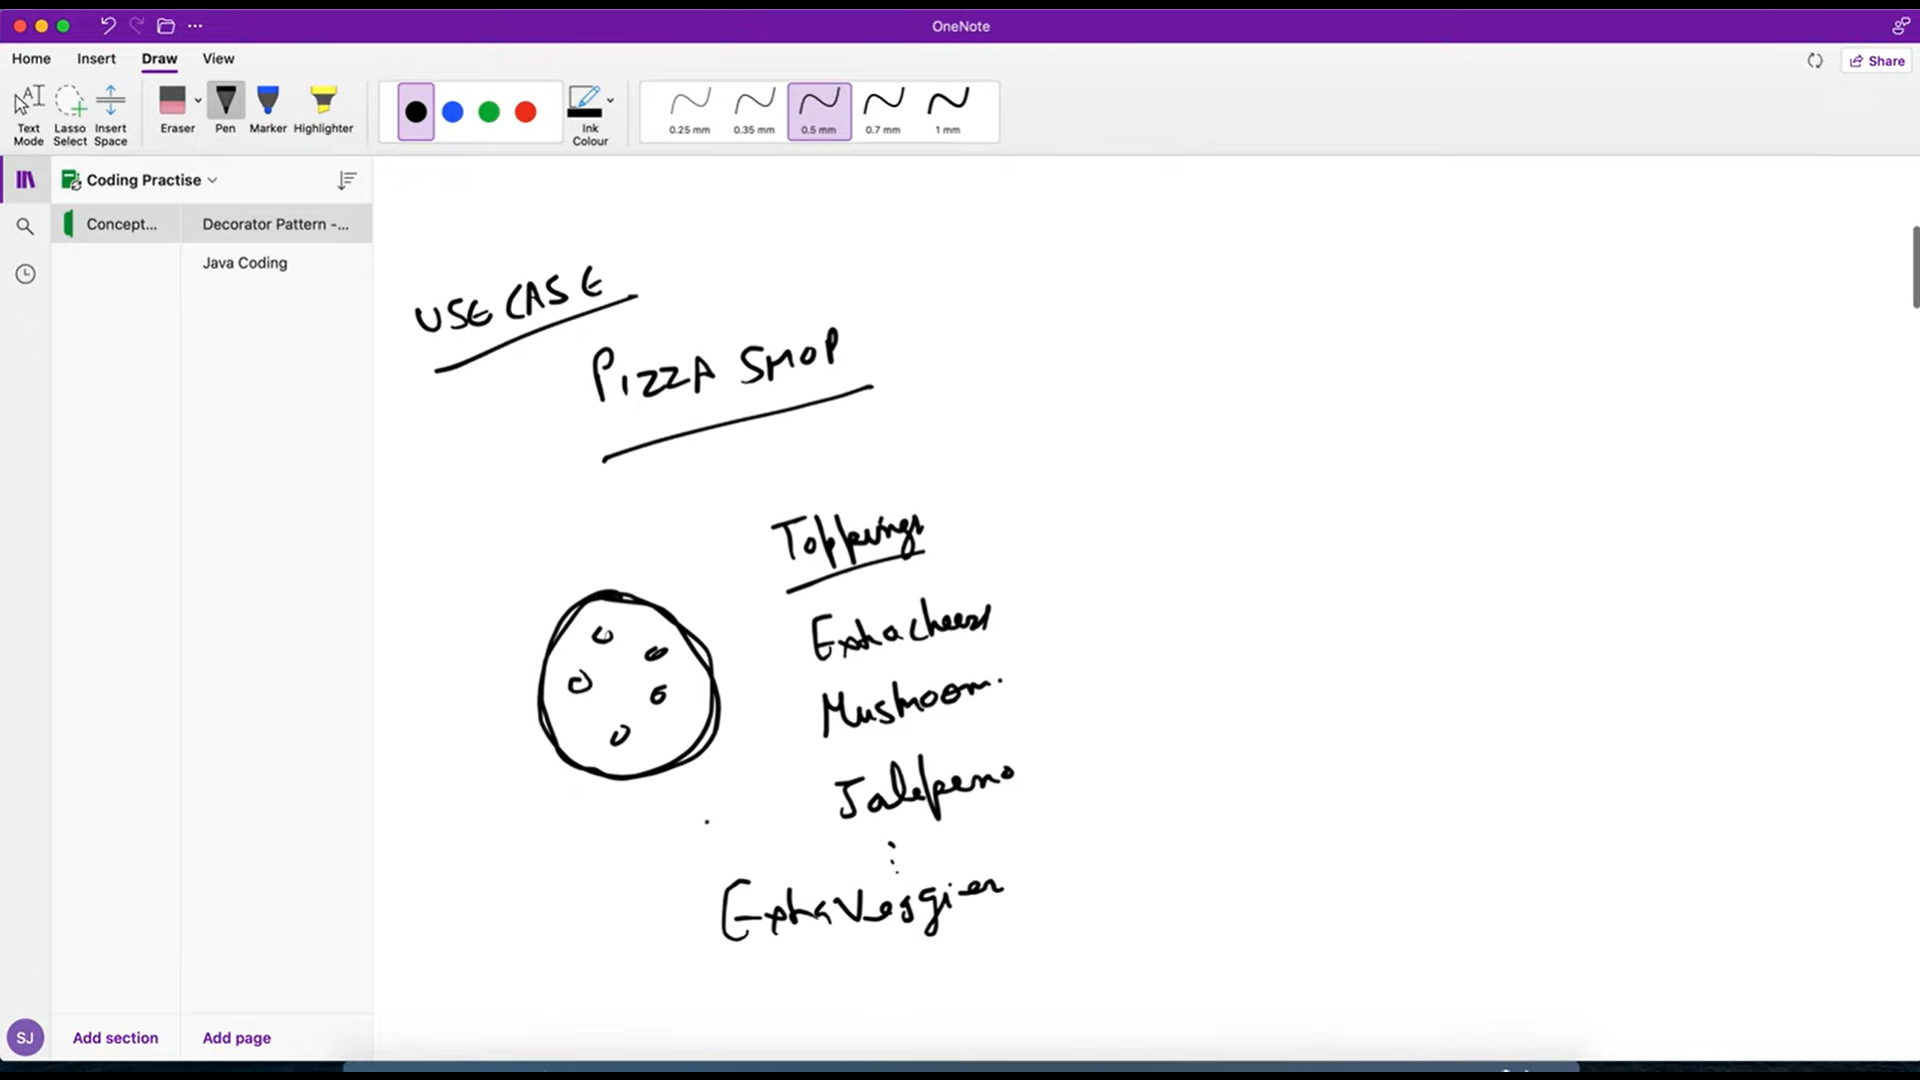 OneNote
Home Insert Draw View
Share
Text Mode
Lasso Select
Insert Space
Eraser
Pen
Marker
Highlighter
Ink Colour
0.25 mm
0.35 mm
0.5 mm
0.7 mm
1 mm
Coding Practise
Concept...
Decorator Pattern -...
Java Coding
USE CASE
PIZZA SHOP
Toppings
Extra cheese
Mushroom.
Jalepeno
Extra Veggies
SJ
Add section
Add page